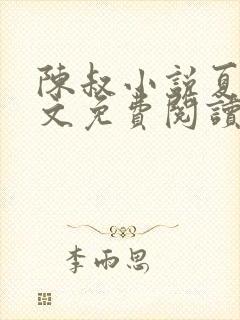 陳叔小説夏
文免費閱讀
李雨思